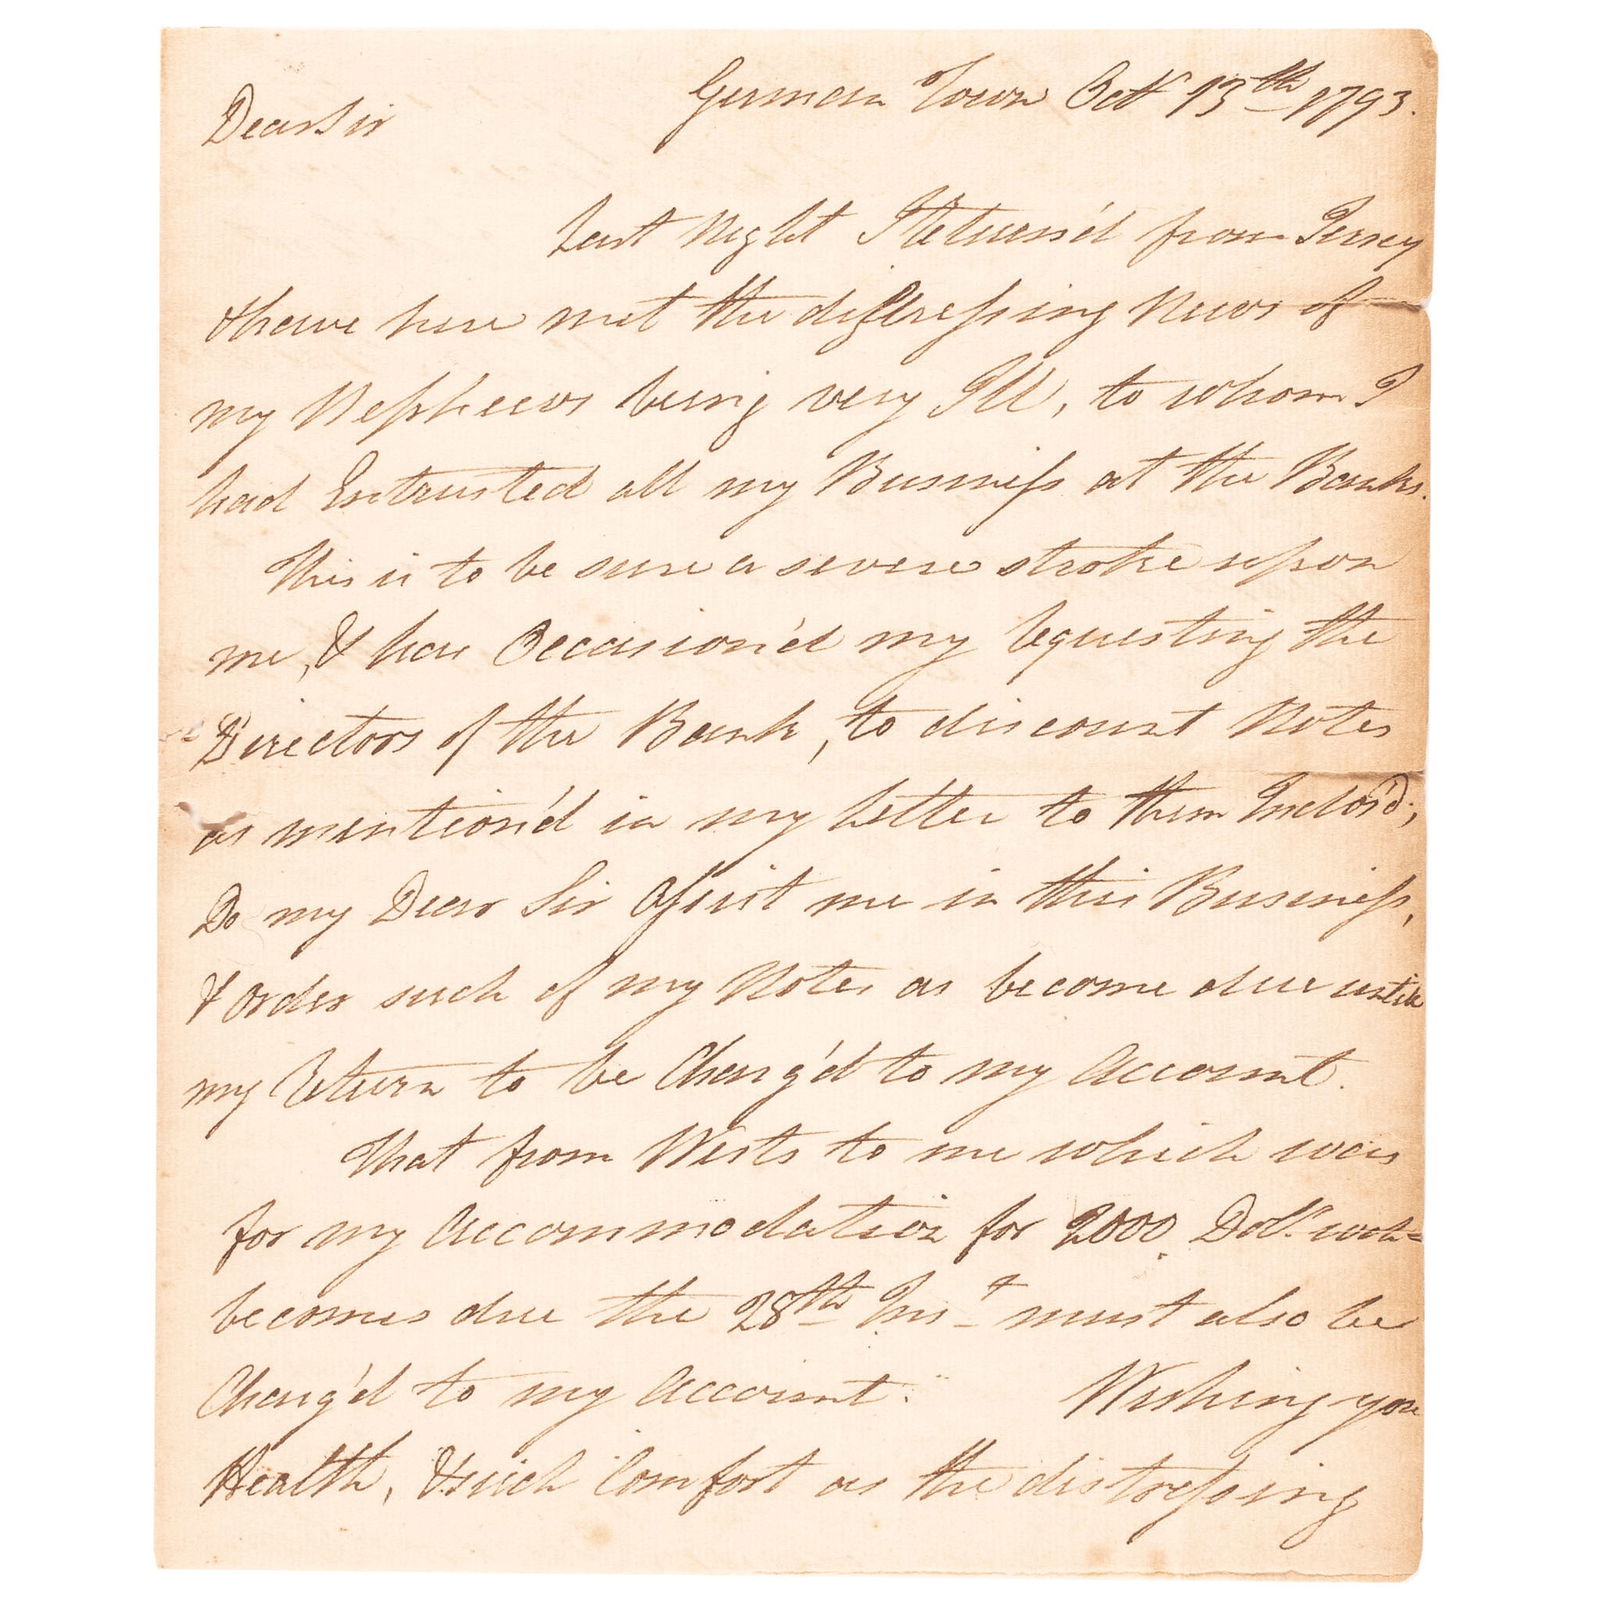 German Town Octr 13th 1793.
Dear Sir
Last Night I Return'd from Jersey
& have here met the distressing News of
my Nephews being very Ill, to whom I
had Entrusted all my Business at the Banks.
This is to be sure a severe stroke upon
me, & has Occasion'd my requesting the
Directors of the Bank, to discount Notes
as mention'd in my Letter to them Inclos'd;
Do my Dear Sir Assist me in this Business,
& order such of my Notes as become due untill
my Return to be Charg'd to my Account.
That from Wests to me which was
for my Accommodation for 2000 Dollrs wch
becomes due the 28th Inst must also be
Charg'd to my Account. Wishing you
Health, & such Comfort as the distressing